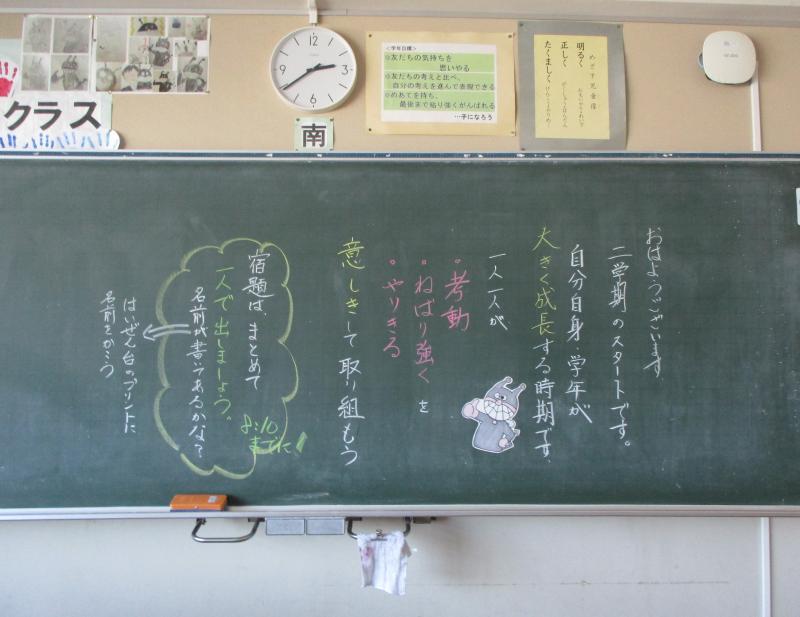 クラス
12
3
6
9
南
<学年目標>
◎友だちの気持ちを
思いやる
◎友だちの考えと比べ、
自分の考えを進んで表現できる
◎めあてを持ち、
最後まで粘り強くがんばれる
…子になろう
めざす児童像
明るく
正しく
たくましく
おはようございます
二学期のスタートです。
自分自身・学年が
大きく成長する時期です。
一人一人が
・考動
・ねばり強く を
・やりきる
意しきして取り組もう
宿題は、まとめて
一人で出しましょう。
名前が書いてあるかな?
8:10
までに!
はいぜん台のプリントに
名前をかこう